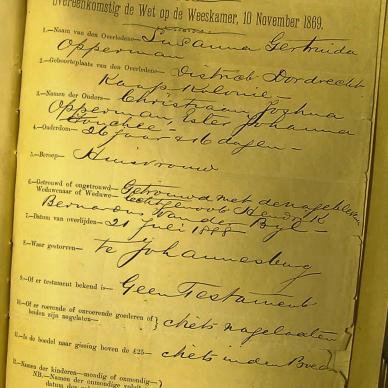 Overeenkomstig de Wet op de Weeskamer, 10 November 1869.
1.—Naam van den Overledene— Susanna Gertruida
Opperman
2.—Geboorteplaats van den Overledene— District Dordrecht
Kaap Kolonie—
3.—Namen der Ouders— Christiaan Joshua
Opperman, Ester Johanna
4.—Ouderdom— 26 jaar & 16 dagen—
5.—Beroep— Huisvrouw
6.—Getrouwd of ongetrouwd— Getrouwd met de nagebleven
Weduwenaar of Weduwe— Echtgenoot Hendrik
Bernardus van der Byl—
7.—Datum van overlijden— 21 Juli 1888—
8.—Waar gestorven— te Johannesburg
9.—Of er testament bekend is— Geen Testament
10.—Of er roerende of onroerende goederen of
beiden zijn nagelaten— niets nagelaten
11.—Is de boedel naar gissing boven de £25— niets in den Boedel
12.—Namen der kinderen—mondig of onmondig—
NB.—Namen der onmondige